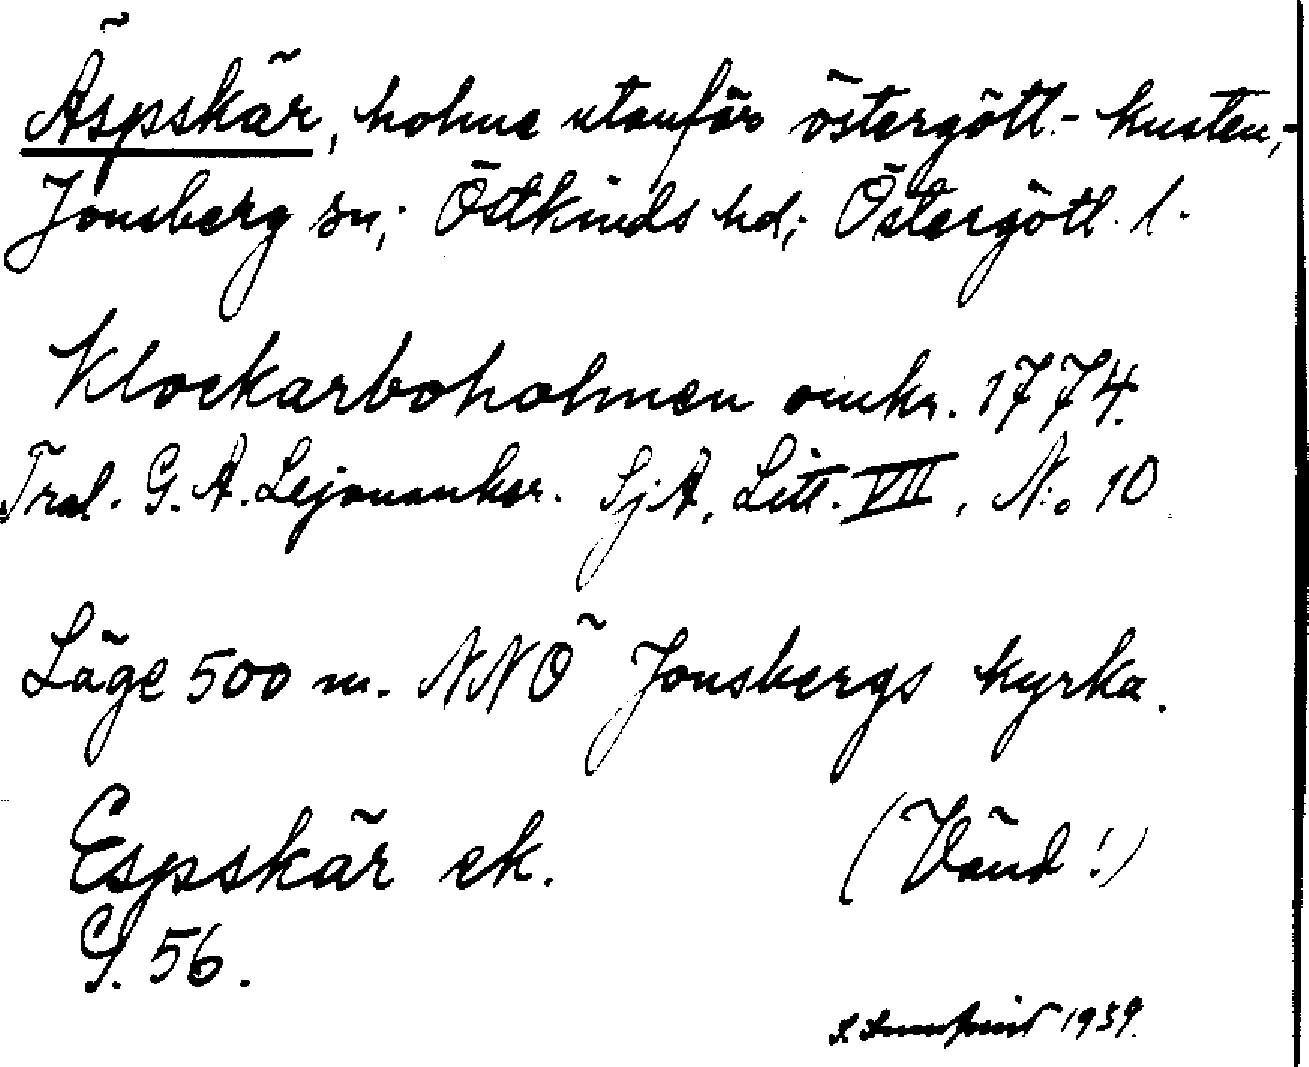 Äspskär, holme utanför östergötl.- kusten,-
Jonsberg sn; Östkinds hd; Östergötl. l.
Klockarboholmen omkr. 1774.
Trol. G. A. Lejonanker. Sj.A, Litt. VII, No 10
Läge 500 m. NNÖ Jonsbergs kyrka.
Espskär ek. (Vänd!)
G. 56.
1939.